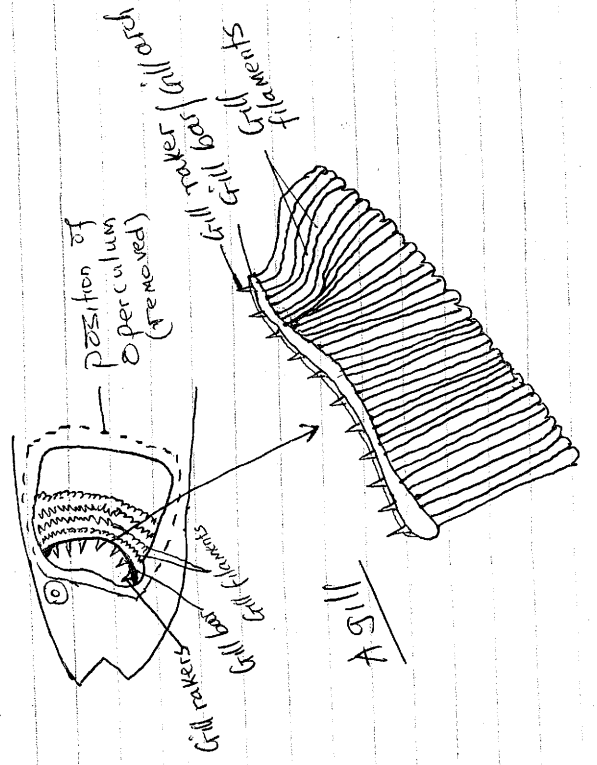 Position of
Operculum
(removed)
Gill raker
Gill bar/Gill arch
Gill
filaments
Gill rakers
Gill bar
Gill filaments
A gill